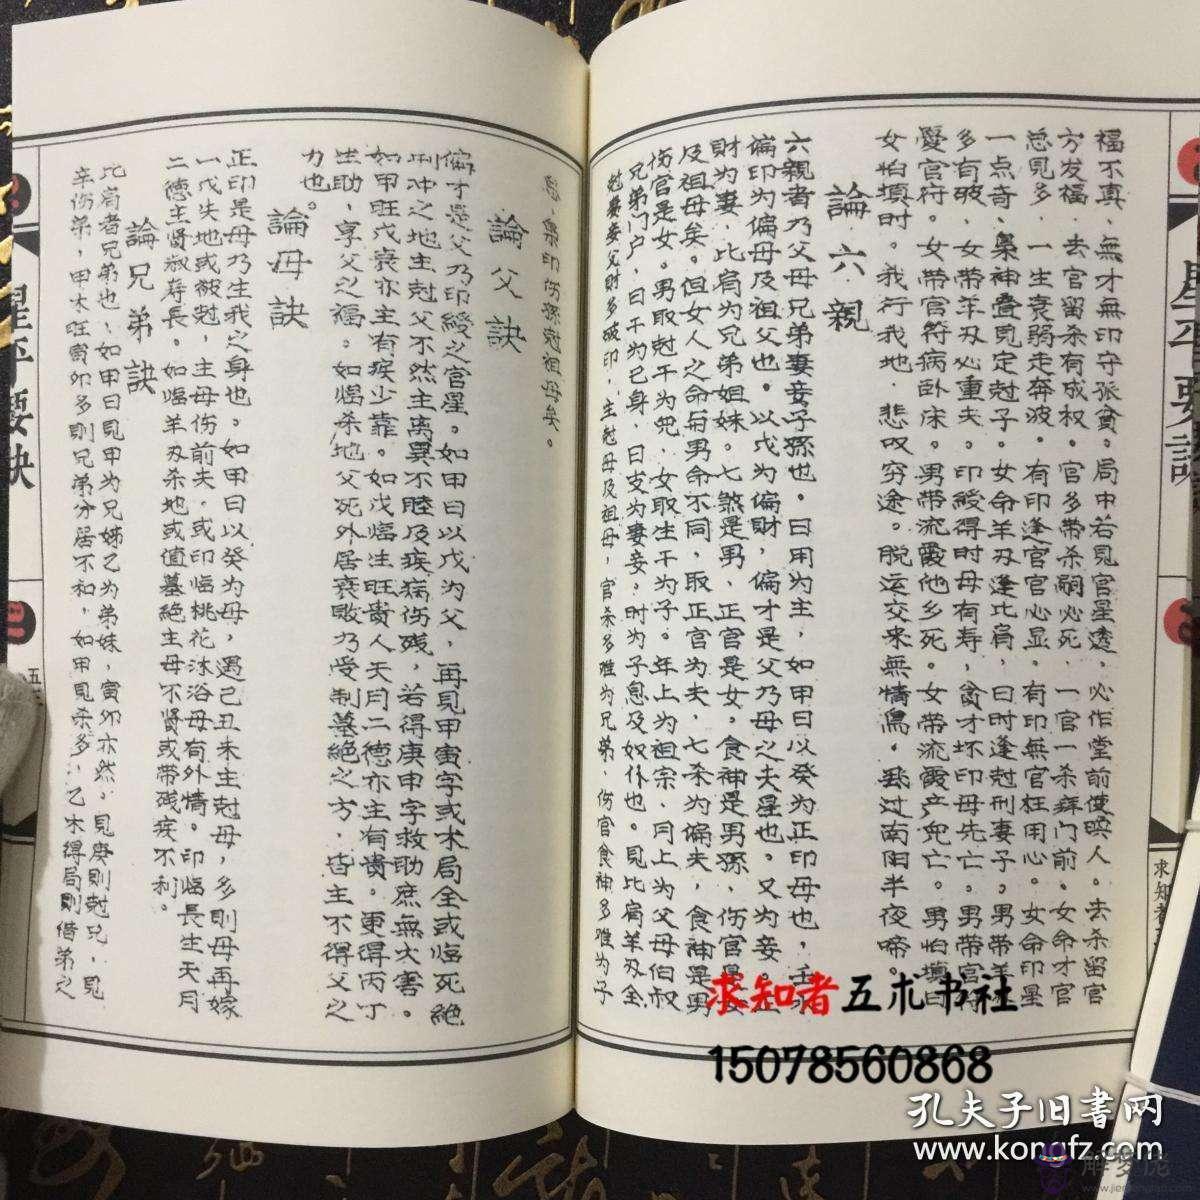 福不真，無才無印守张貧。局中若見官星透，必作堂前使唤人。去杀留官
方发福，去官留杀有成权。官多带杀嗣必死，一官一杀病门前。女命才官
忌見多，一生衰弱走奔波。有印逢官官必显，有印無官枉用心。女命印星
一点奇，梟神叠見定尅子。女命羊刃逢比肩，日时逢尅刑妻子。男带羊
多有破，女带羊刃必重夫。印綬得时母有寿，貪才坏印母先亡。男带官符
愛官府。女带官符病卧床。男带流霞他乡死。女带流霞产兜亡。男怕填日
女怕填时。我行我地，悲叹穷途。脱运交来無情篤。過南阳半夜啼。
論六親
六親者乃父母兄弟妻妾子孫也。日用为主，如甲日以癸为正印母也，壬
偏印为偏母及祖父也。以戊为偏財，偏才是父乃母之夫星也。又为妾。
財为妻，比肩为兄弟姐妹。七煞是男，正官是女。食神是男孫，伤官是
及祖母矣。但女人之命与男命不同，取正官为夫，七杀为偏夫，食神是男
伤官是女。男取尅干为兜，女取生干为子。年上为祖宗，月上为父母伯叔
兄弟门户，日干为已身，日支为妻妾。时为子息及奴仆也。見比肩羊刃全
尅妻妾父財多破印，主尅母及祖母，官杀多难为兄弟，伤官食神多难为子
息，梟印伤孫尅祖母矣。
論父訣
偏才是父乃印綬之官星。如甲日以戊为父，再見甲寅字或木局全或临死絕
刑冲之地主尅父不然主离異不睦及疾病伤残，若得庚申字救助庶無大害。
如甲旺戊衰亦主有疾少靠。如戊临生旺貴人天月二德亦主有貴。更得丙丁
生助，享父之福。如临杀地父死外居衰敗乃受制墓絕之方，皆主不得父之
力也。
論母訣
正印是母乃生我之身也。如甲日以癸为母，遇己丑未主尅母，多則母再嫁
一戊失地或被尅，主母伤前夫。或印临桃花沐浴母有外情。印临長生天月
二德主賢淑寿長。如临羊刃杀地或值墓絕主母不賢或带残疾不利。
論兄弟訣
比肩者兄弟也，如甲日見甲为兄姊乙为弟妹，寅卯亦然。見庚則尅兄，見
辛伤弟，甲木旺寅卯多則兄弟分居不和，如甲見杀多，乙木得局則借弟之
星平要訣
五
求知者
求知者五术书社
15078560868
孔夫子旧書网
www.kongfz.com